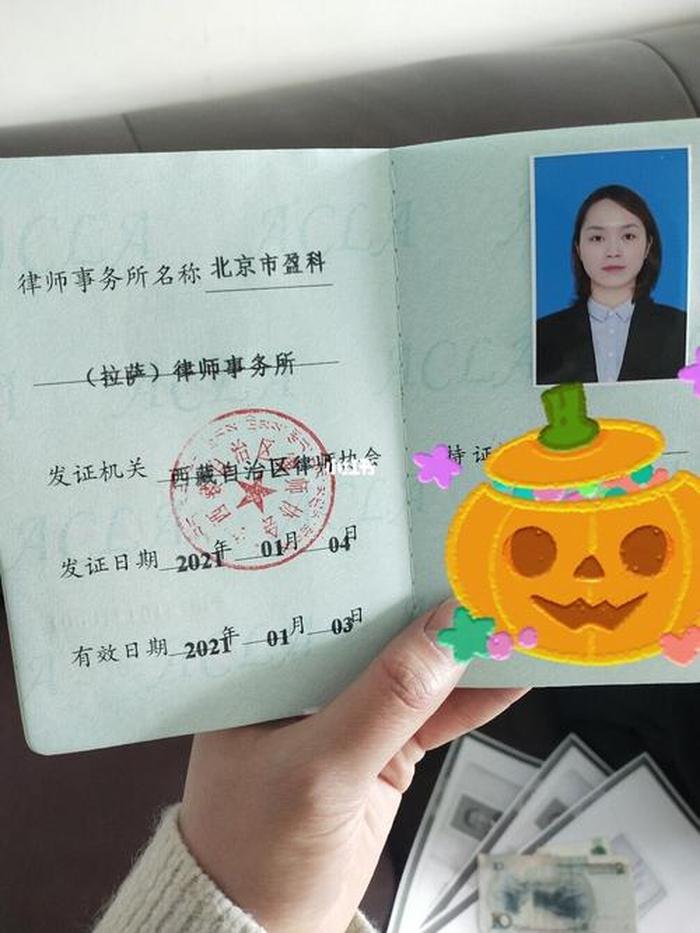 律师事务所名称 北京市盈科
（拉萨）律师事务所
发证机关 西藏自治区律师协会
发证日期 2021年 01月 04日
有效日期 2021年 01月 03日
持证
ACLA
小红书
10